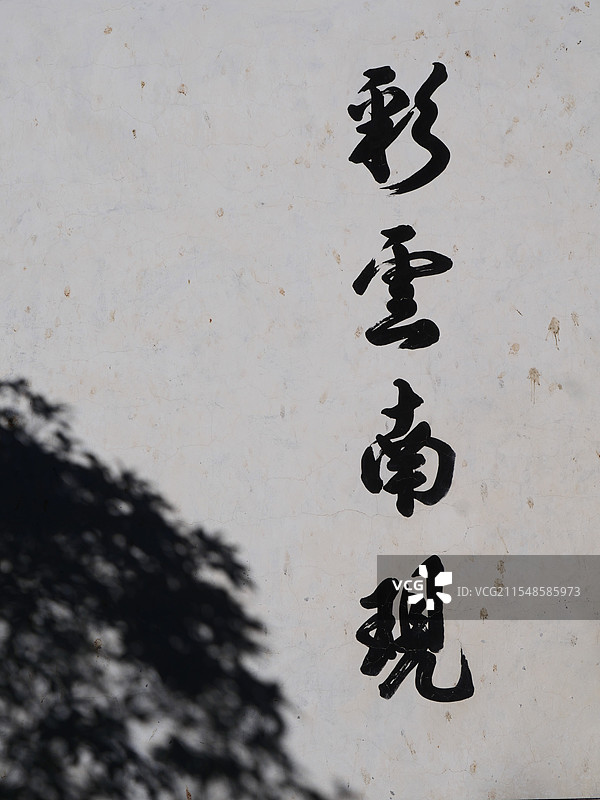 彩雲南現
VCG
ID: VCG211548585973